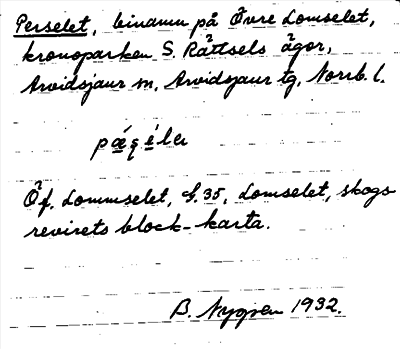 Perselet, binamn på Övre Lomselet,
kronoparken S. Råttsels ägor,
Arvidsjaur sn, Arvidsjaur tg, Norrb. l.
Öf. Lommselet, bl. 35, Lomselet, skogs
revirets block-karta.
B. Nygren 1932.